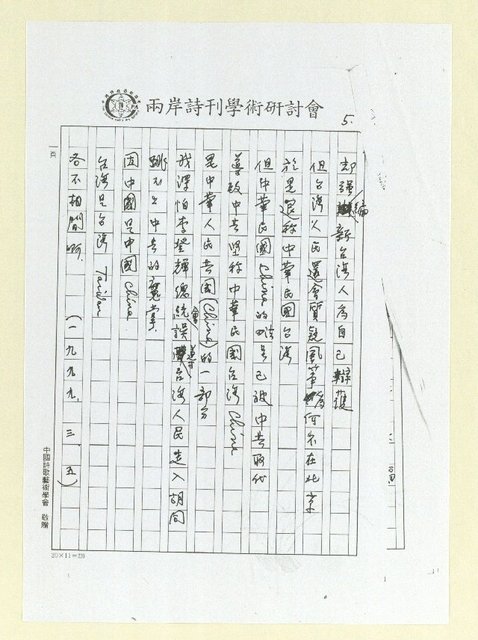 兩岸詩刊學術研討會
5.
却謂編新台灣人為自己辯護
但台灣人民還會質疑風箏為何不在北京
於是退稱中華民國台灣
但中華民國 China的 號已被中共取代
導致中共堅稱中華民國台灣 China
是中華人民共國(China)的一部分
我深怕李登輝總統會誤導台灣人民走入胡同
跳不出中共的魔掌.
因中國是中國 China
台灣是台灣 Taiwan
各不相關啊 (一九九九 三 五)
頁
中國詩歌藝術學會 敬贈
20×11=220